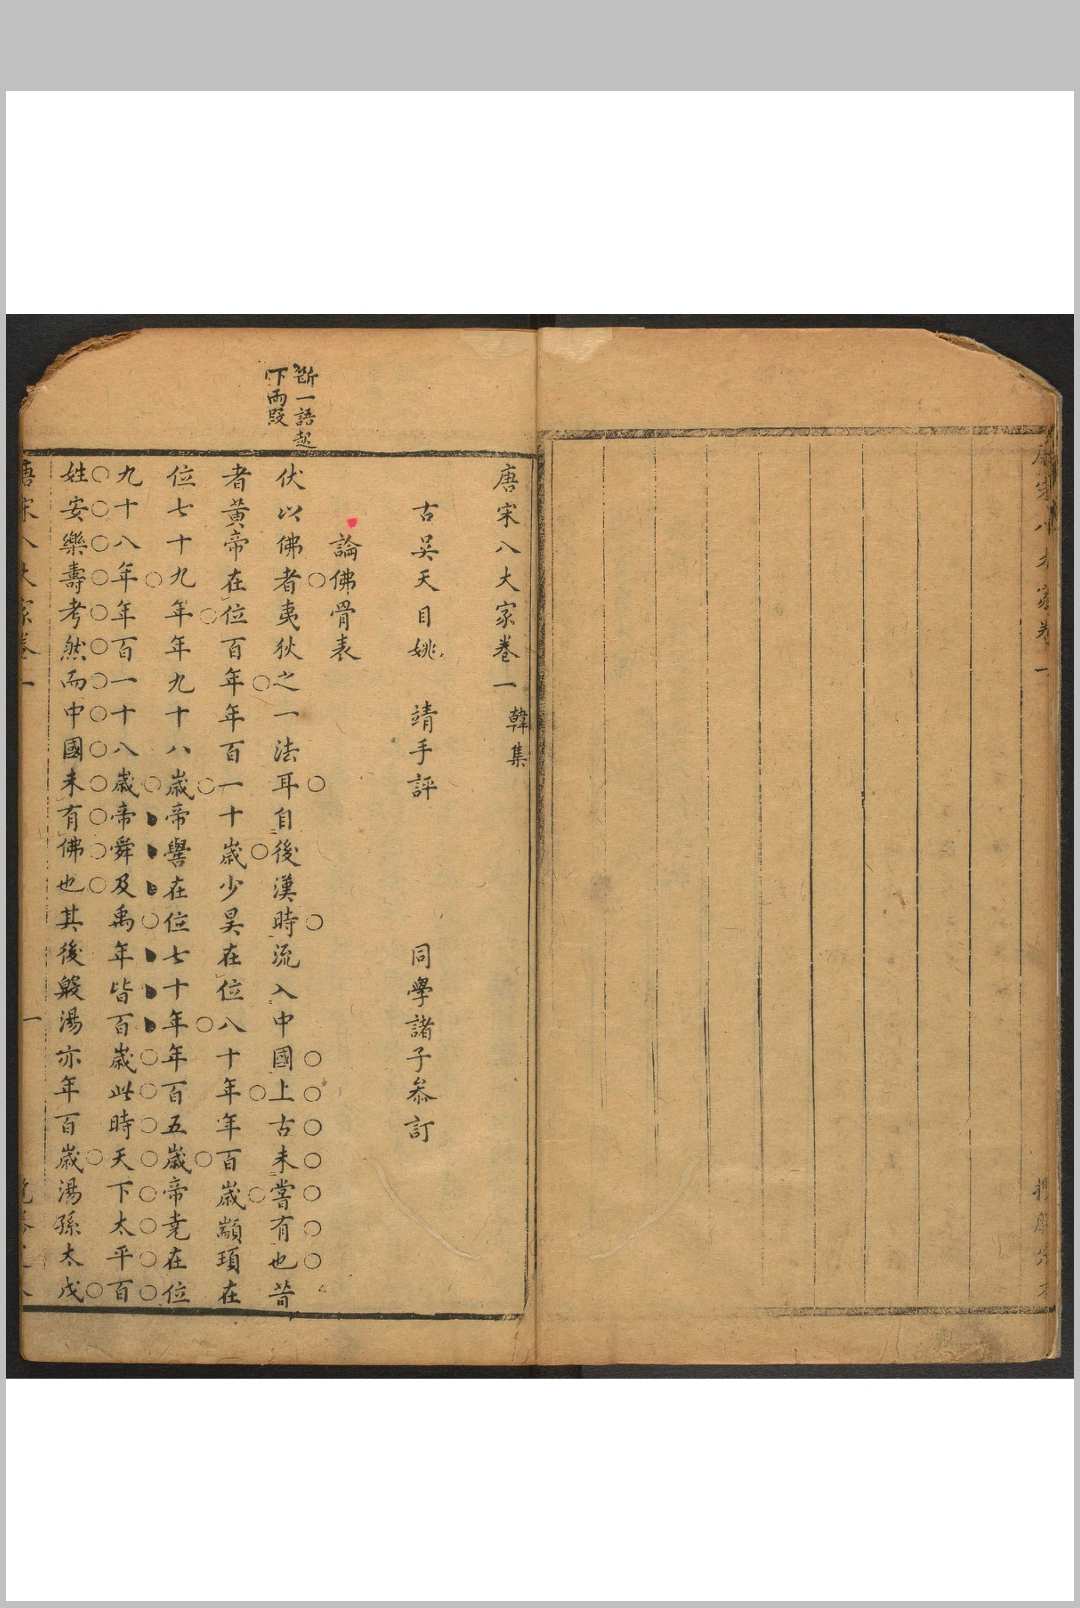 唐宋八大家卷一
斷一語起
下兩段
唐宋八大家卷一 韓集
古吳天目姚 靖手評 同學諸子叅訂
論佛骨表
伏以佛者夷狄之一法耳自後漢時流入中國上古未嘗有也昔
者黃帝在位百年年百一十歲少昊在位八十年年百歲顓頊在
位七十九年年九十八歲帝嚳在位七十年年百五歲帝堯在位
九十八年年百一十八歲帝舜及禹年皆百歲此時天下太平百
姓安樂壽考然而中國未有佛也其後殷湯亦年百歲湯孫太戊
唐宋八大家卷一
一